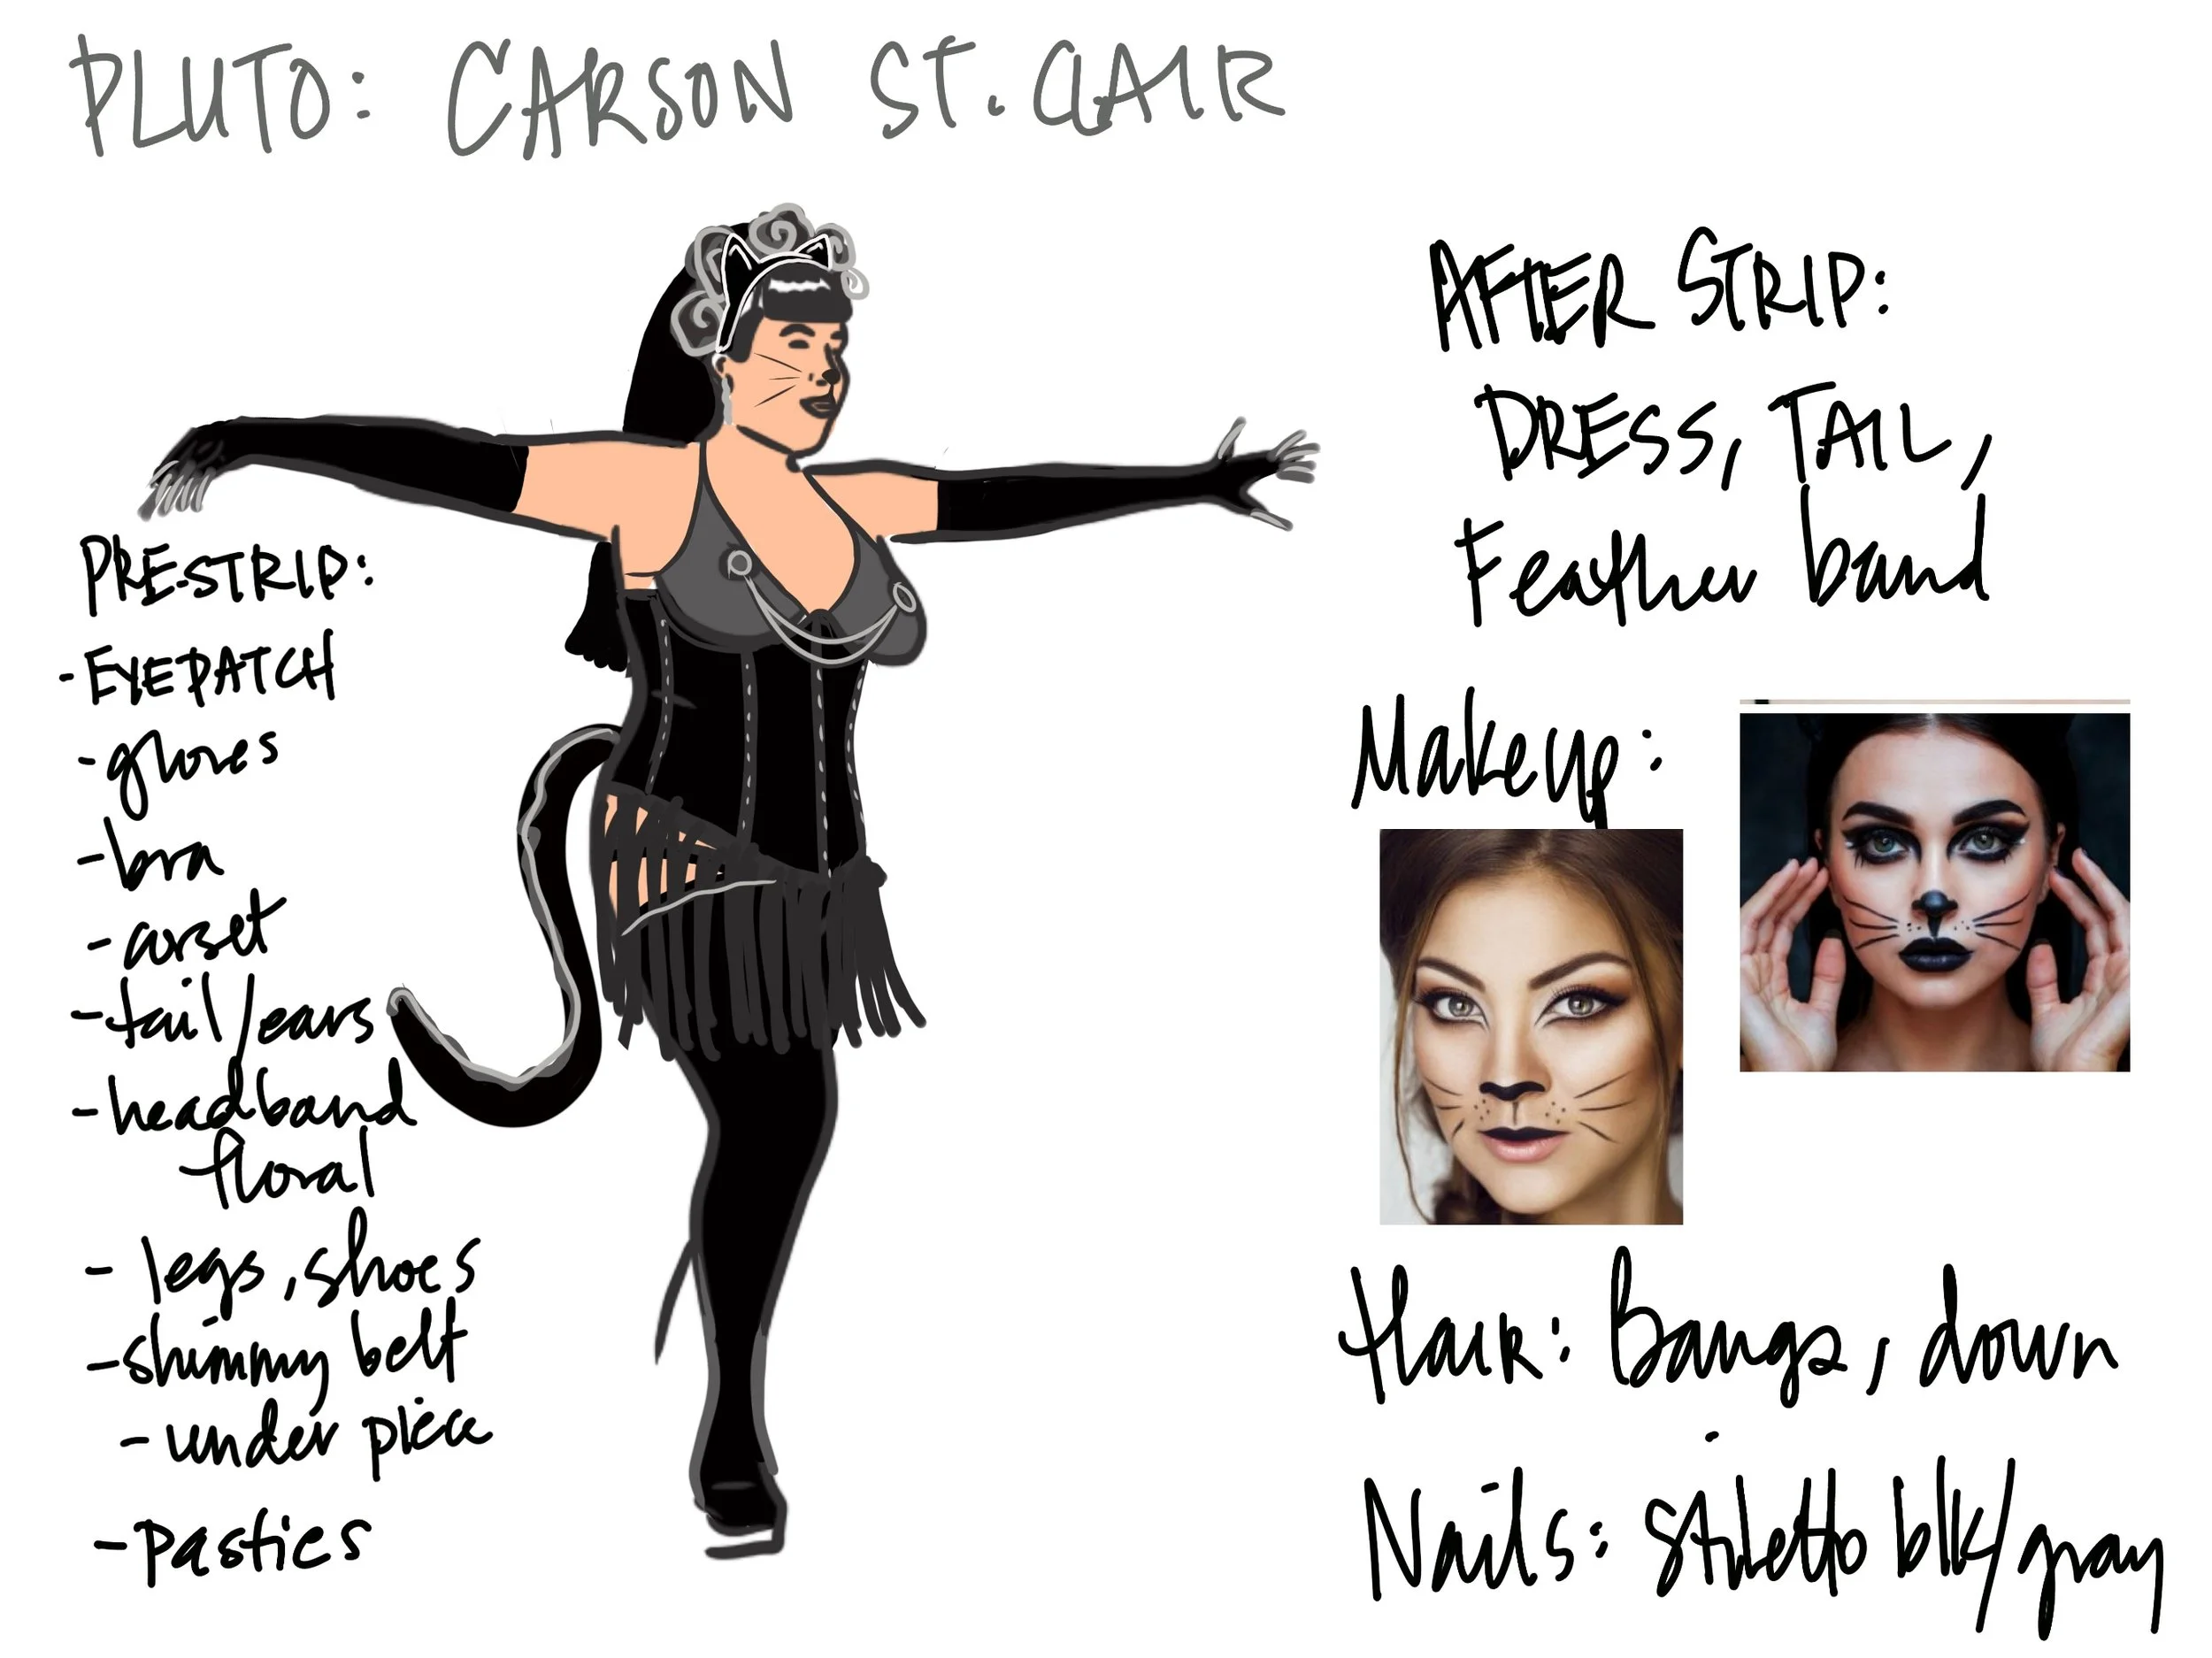 PLUTO: CARSON ST. CLAIR
PRE-STRIP:
- EYEPATCH
- gloves
- bra
- corset
- tail/ears
- headband
floral
- legs, shoes
- shimmy belt
- under piece
- pasties
AFTER STRIP:
DRESS, TAIL,
Feather band
Makeup:
Hair: Bangs, down
Nails: stiletto blk/gray